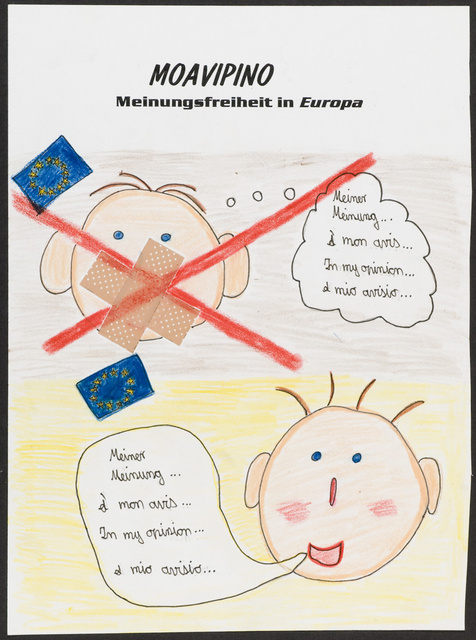 MOAVIPINO
Meinungsfreiheit in Europa
Meiner
Meinung...
À mon avis...
In my opinion...
A mio avisio...
Meiner
Meinung ...
À mon avis...
In my opinion...
A mio avisio...